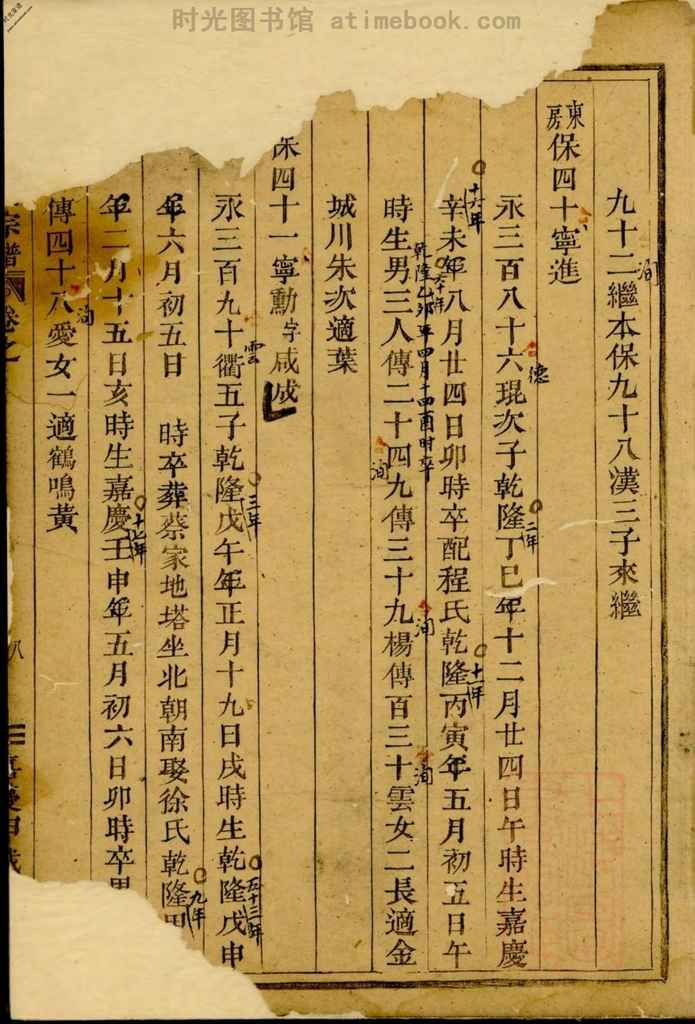 时光图书馆 atimebook.com
九十二繼本保九十八漢三子來繼
洵
東房
保四十寧進
永三百八十六琨次子乾隆丁巳年十二月廿四日午時生嘉慶
德
二年
辛未年八月廿四日卯時卒配程氏乾隆丙寅年五月初五日午
十六年
十一年
乾隆乙卯年四月十四酉時卒
六十年
時生男三人傳二十四九傳三十九楊傳百三十雲女二長適金
洵
洵
洵
城川朱次適葉
保四十一寧勳字咸成
永三百九十衢五子乾隆戊午年正月十九日戌時生乾隆戊申
雲
三年
五十三年
年六月初五日 時卒葬蔡家地塔坐北朝南娶徐氏乾隆甲
九年
年二月十五日亥時生嘉慶壬申年五月初六日卯時卒男
十七年
傳四十八愛女一適鶴鳴黃
洵
宗譜 卷之
八